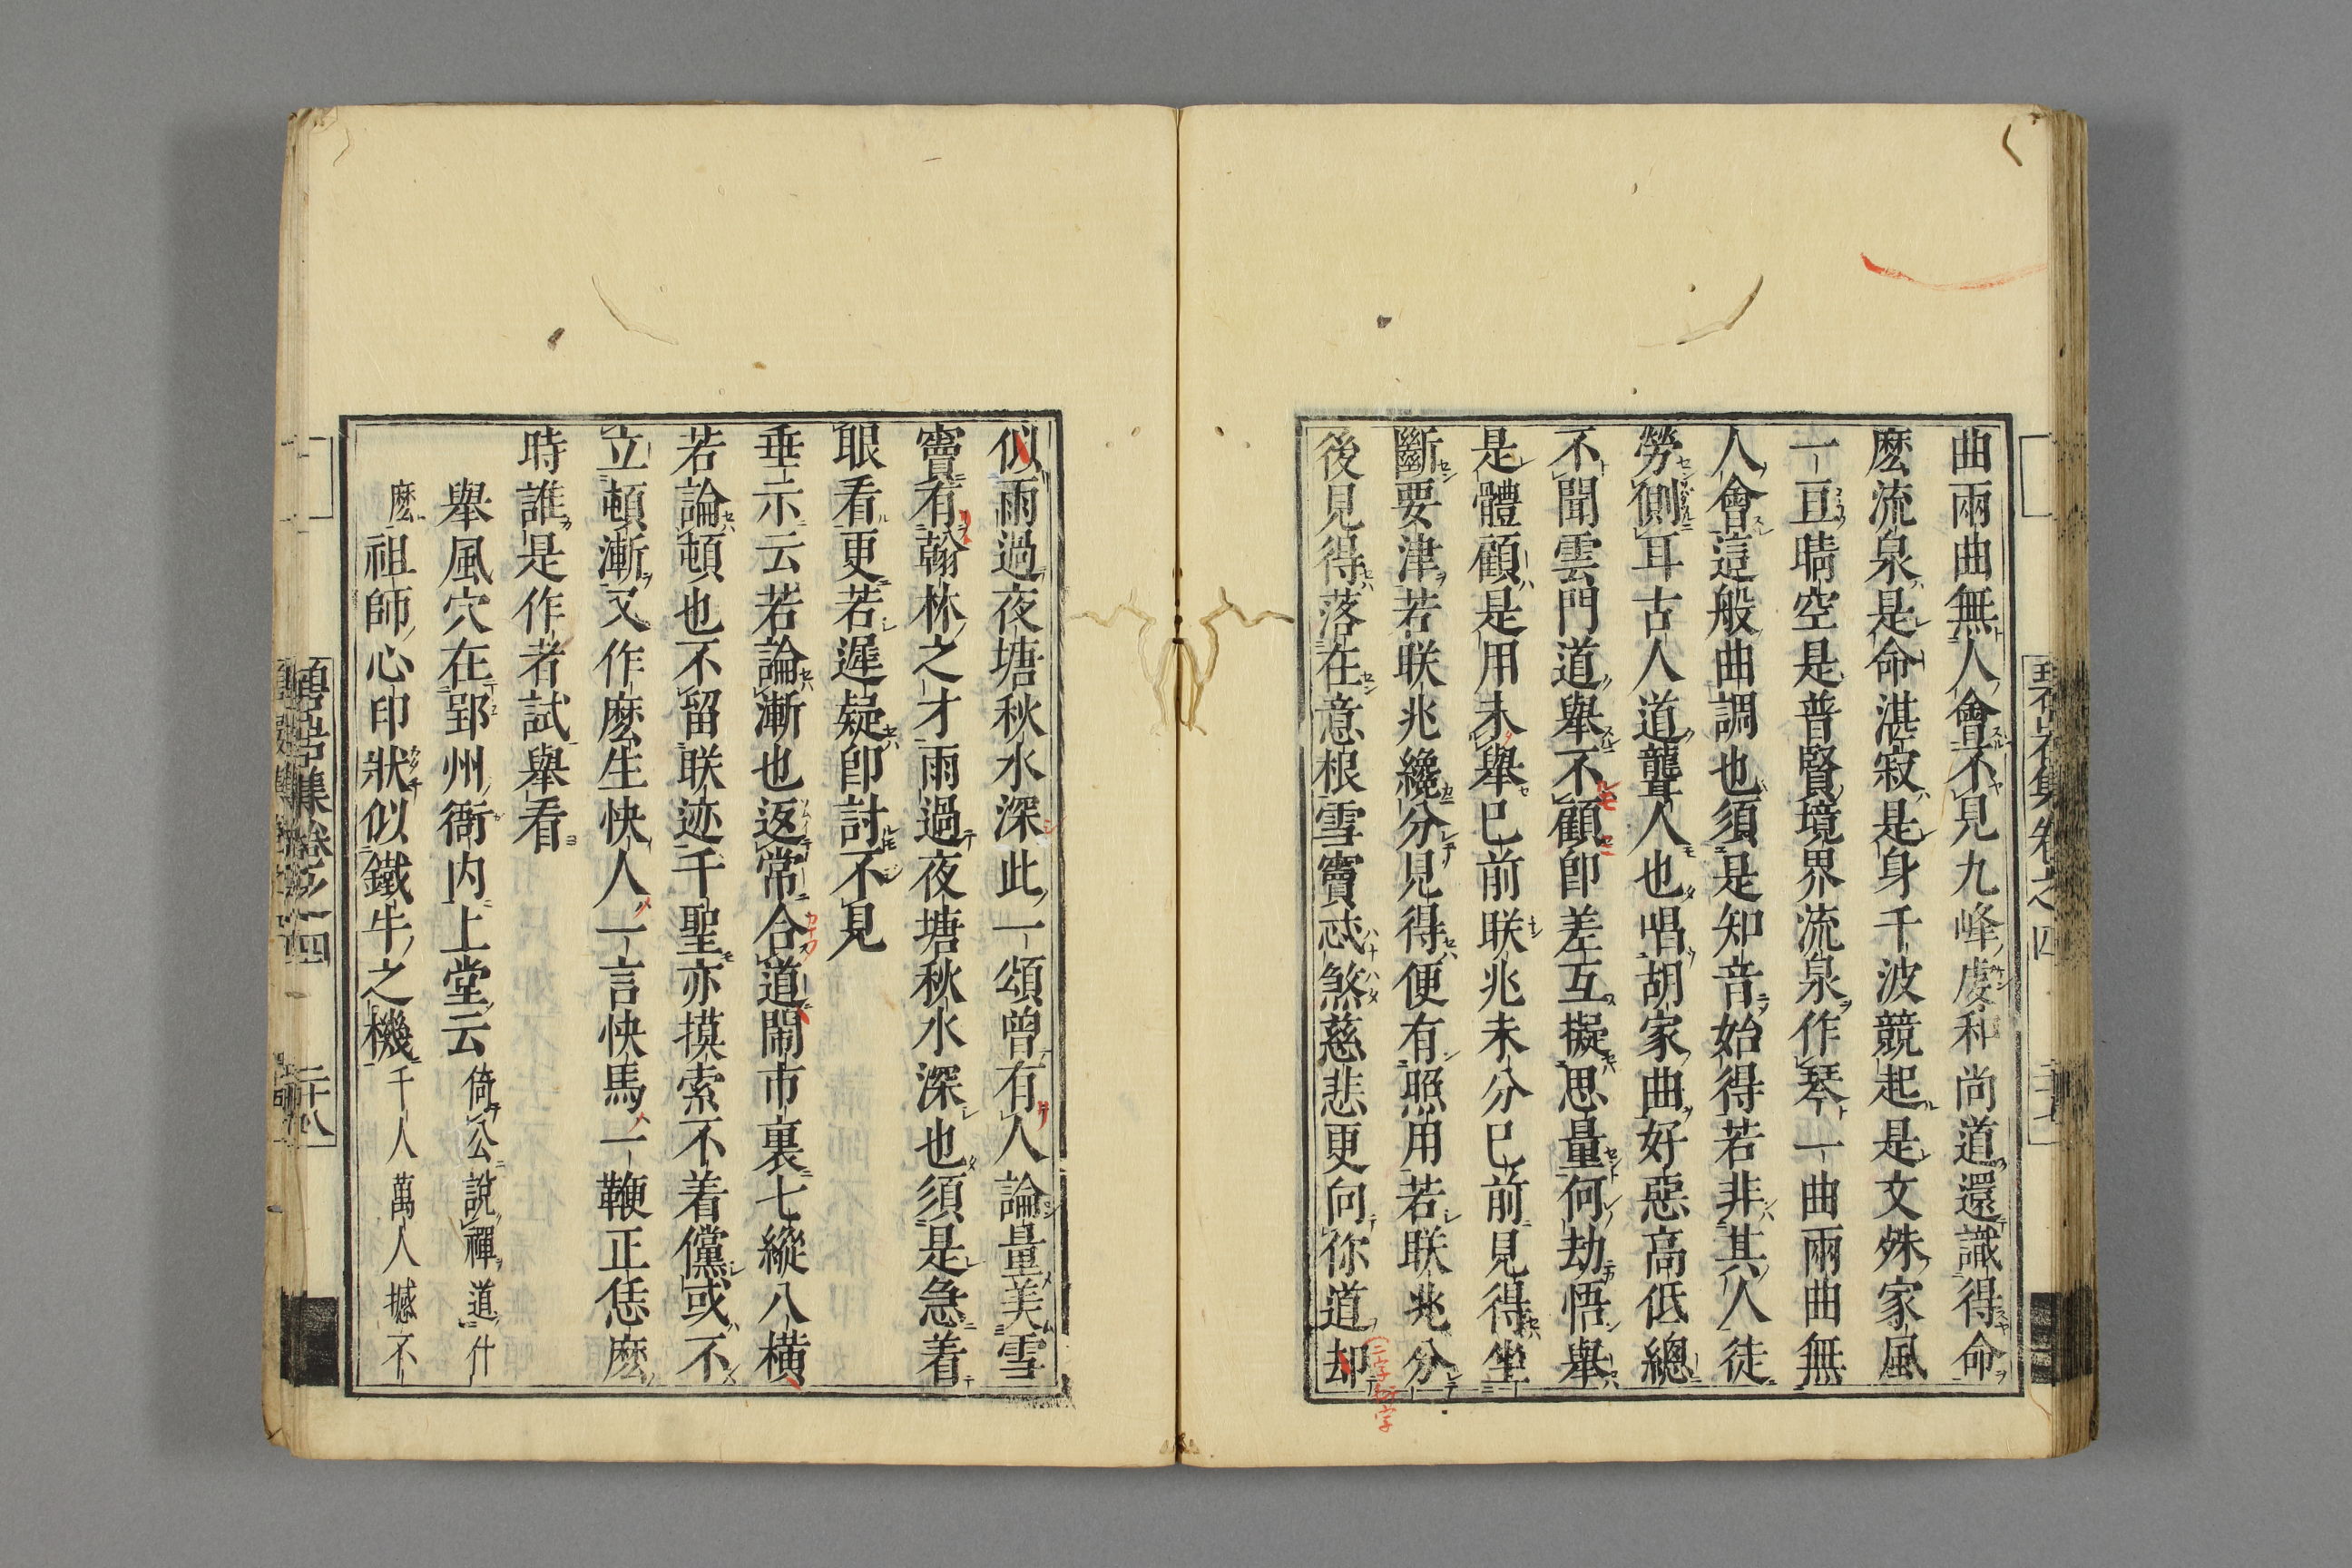 曲兩曲無人會不見九峰虔和尚道還識得命
麽流泉是命湛寂是身千波競起是文殊家風
一亘晴空是普賢境界流泉作琴一曲兩曲無
人會這般曲調也須是知音始得若非其人徒
勞側耳古人道聾人也唱胡家曲好惡高低總
不聞雲門道舉不顧即差互擬思量何劫悟舉
是體顧是用未舉已前朕兆未分已前見得坐
斷要津若朕兆纔分見得便有照用若朕兆分
後見得落在意根雪竇忒煞慈悲更向你道却
似雨過夜塘秋水深此一頌曾有人論量美雪
竇有翰林之才雨過夜塘秋水深也須是急着
眼看更若遲疑即討不見
垂示云若論漸也返常合道閙市裏七縱八橫
若論頓也不留朕迹千聖亦摸索不着儻或不
立頓漸又作麽生快人一言快馬一鞭正恁麽
時誰是作者試舉看
舉風穴在郢州衙内上堂云倚公說禪道什
麽祖師心印狀似鐵牛之機千人萬人撼不
碧岩集卷之四
二十八